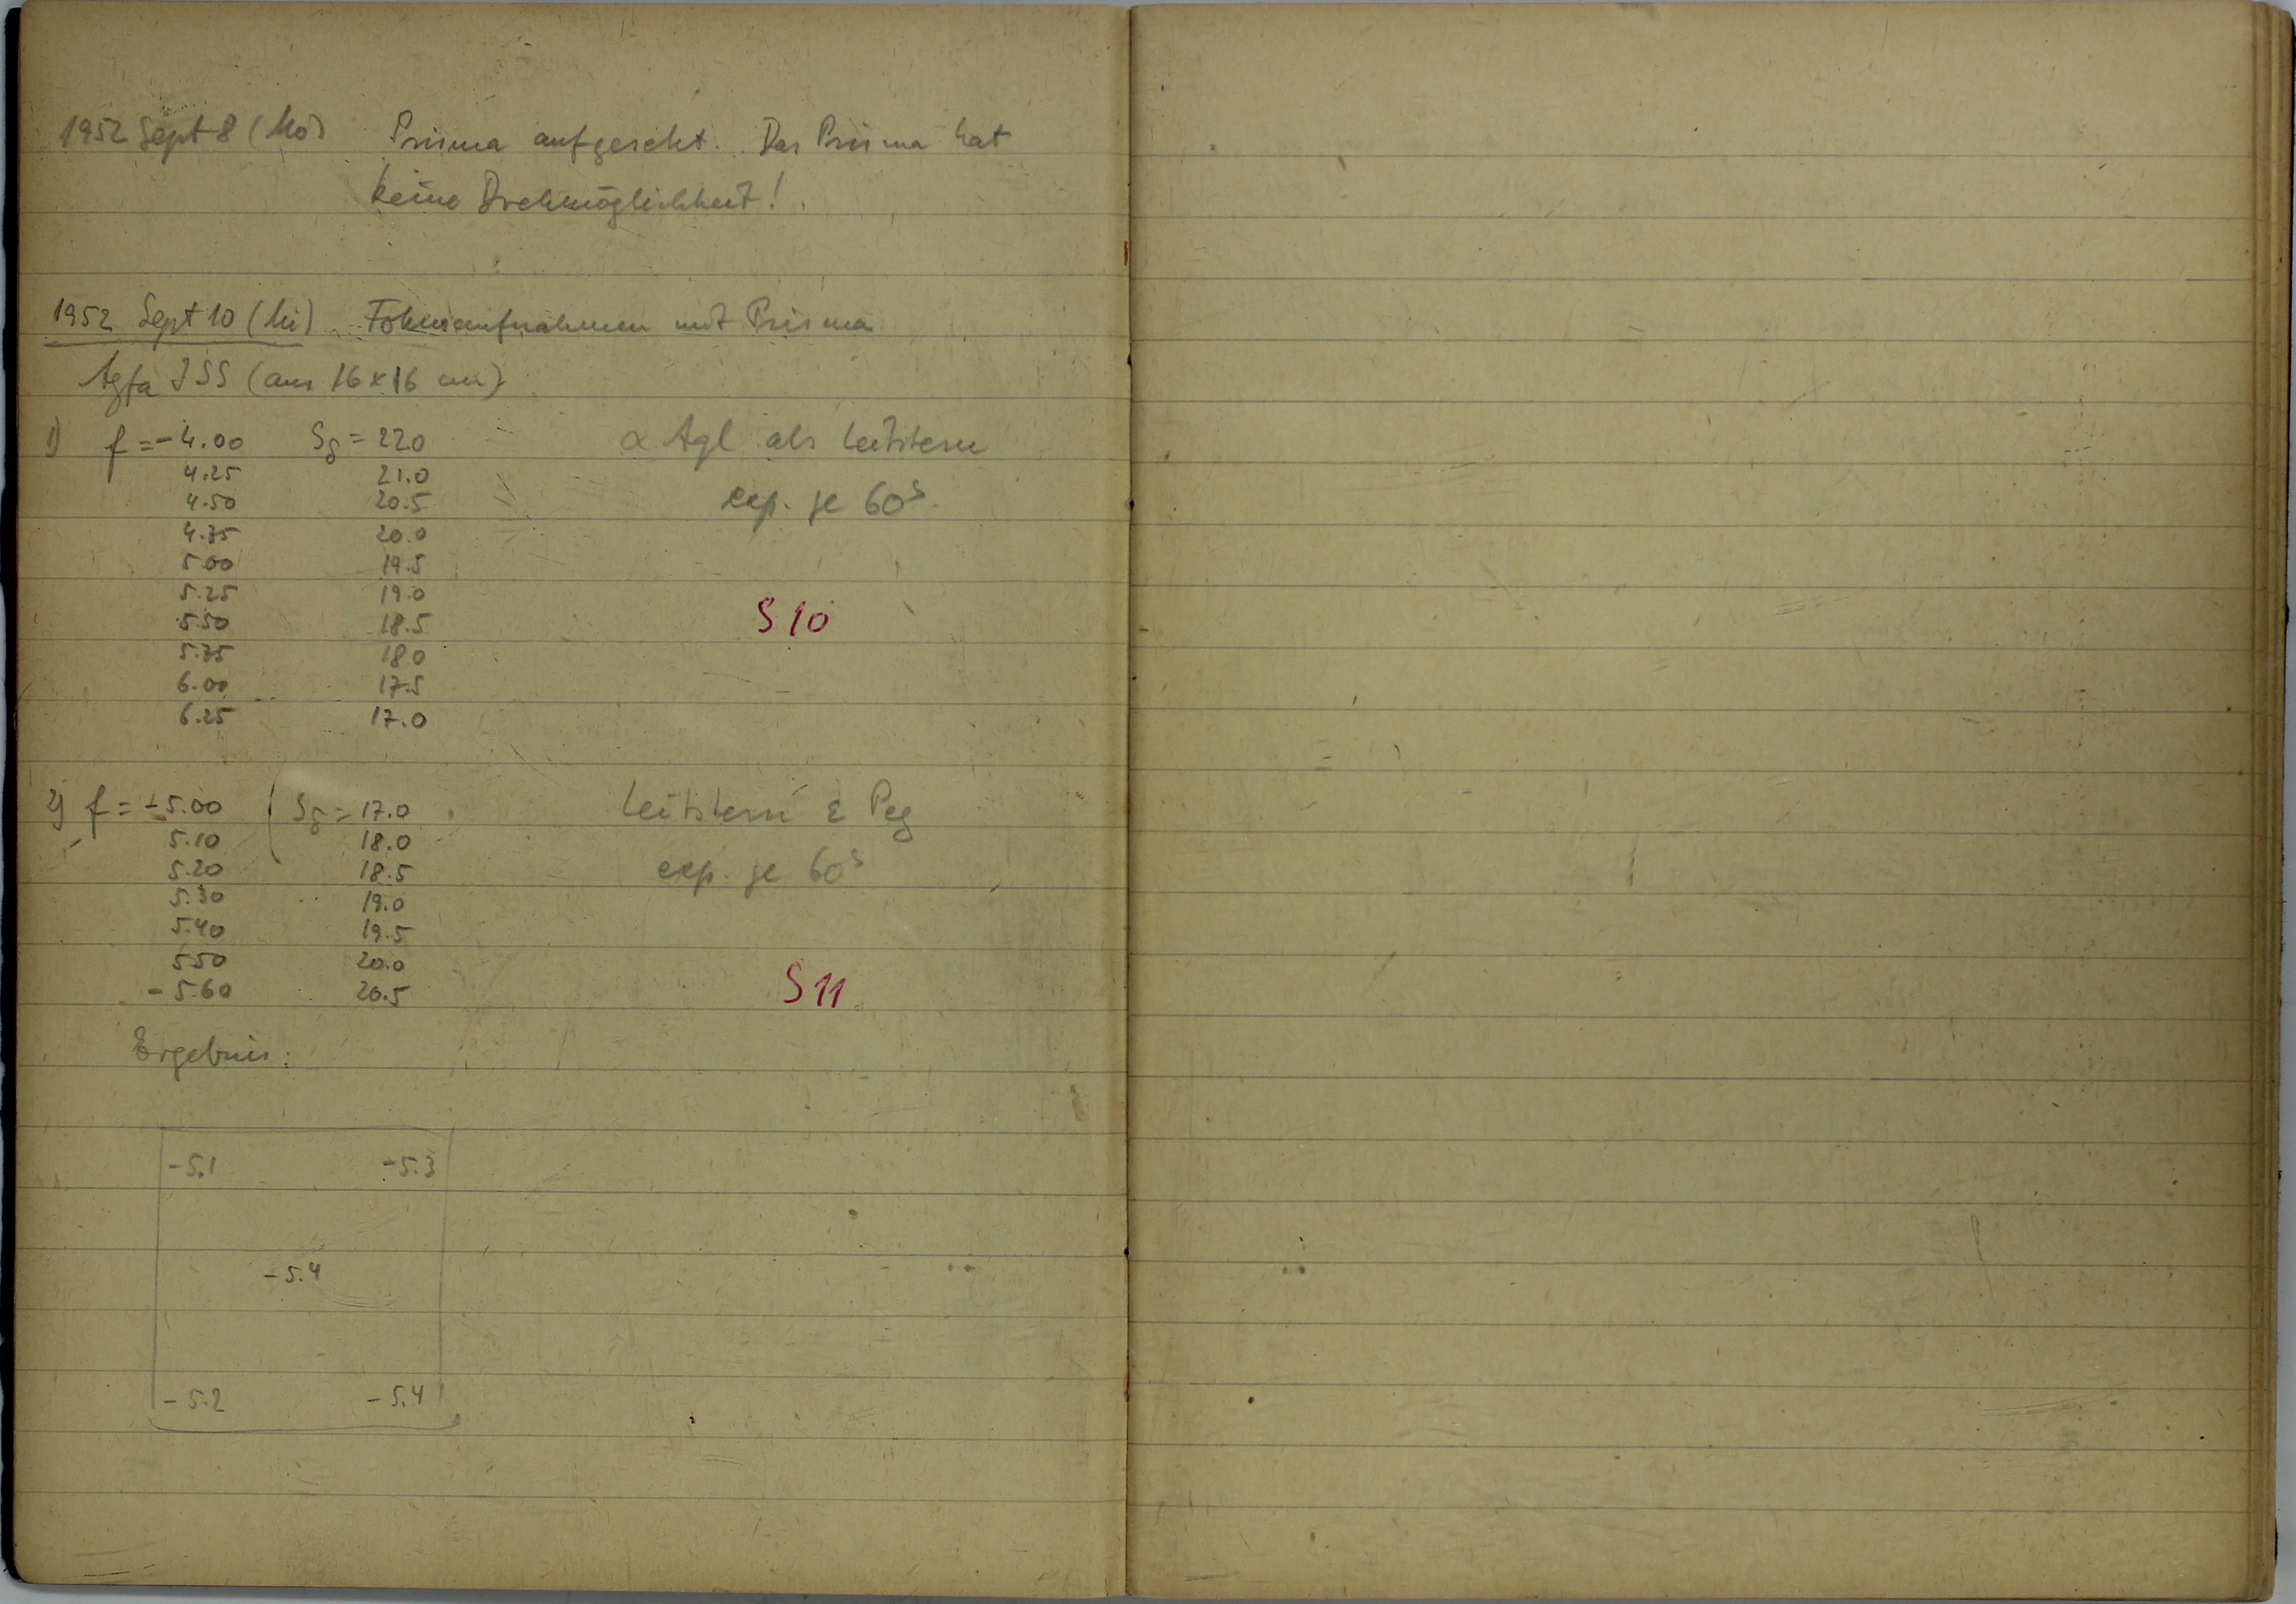 1952 Sept 8 (Mo) Prisma aufgesetzt. Das Prisma hat
keine Drehmöglichkeit!
1952 Sept 10 (Mi) Fokusaufnahmen mit Prisma
Agfa ISS (aus 16×16 cm)
1) f = -4.00 Sδ = 220 α Aql als Leitstern
4.25 21.0
4.50 20.5 exp. je 60s
4.75 20.0
5.00 19.5
5.25 19.0
5.50 18.5 S 10
5.75 18.0
6.00 17.5
6.25 17.0
2) f = -5.00 Sδ = 17.0 Leitstern ε Peg
5.10 18.0
5.20 18.5 exp. je 60s
5.30 19.0
5.40 19.5
5.50 20.0
-5.60 20.5 S 11
Ergebnis:
-5.1 -5.3
-5.4
-5.2 -5.4